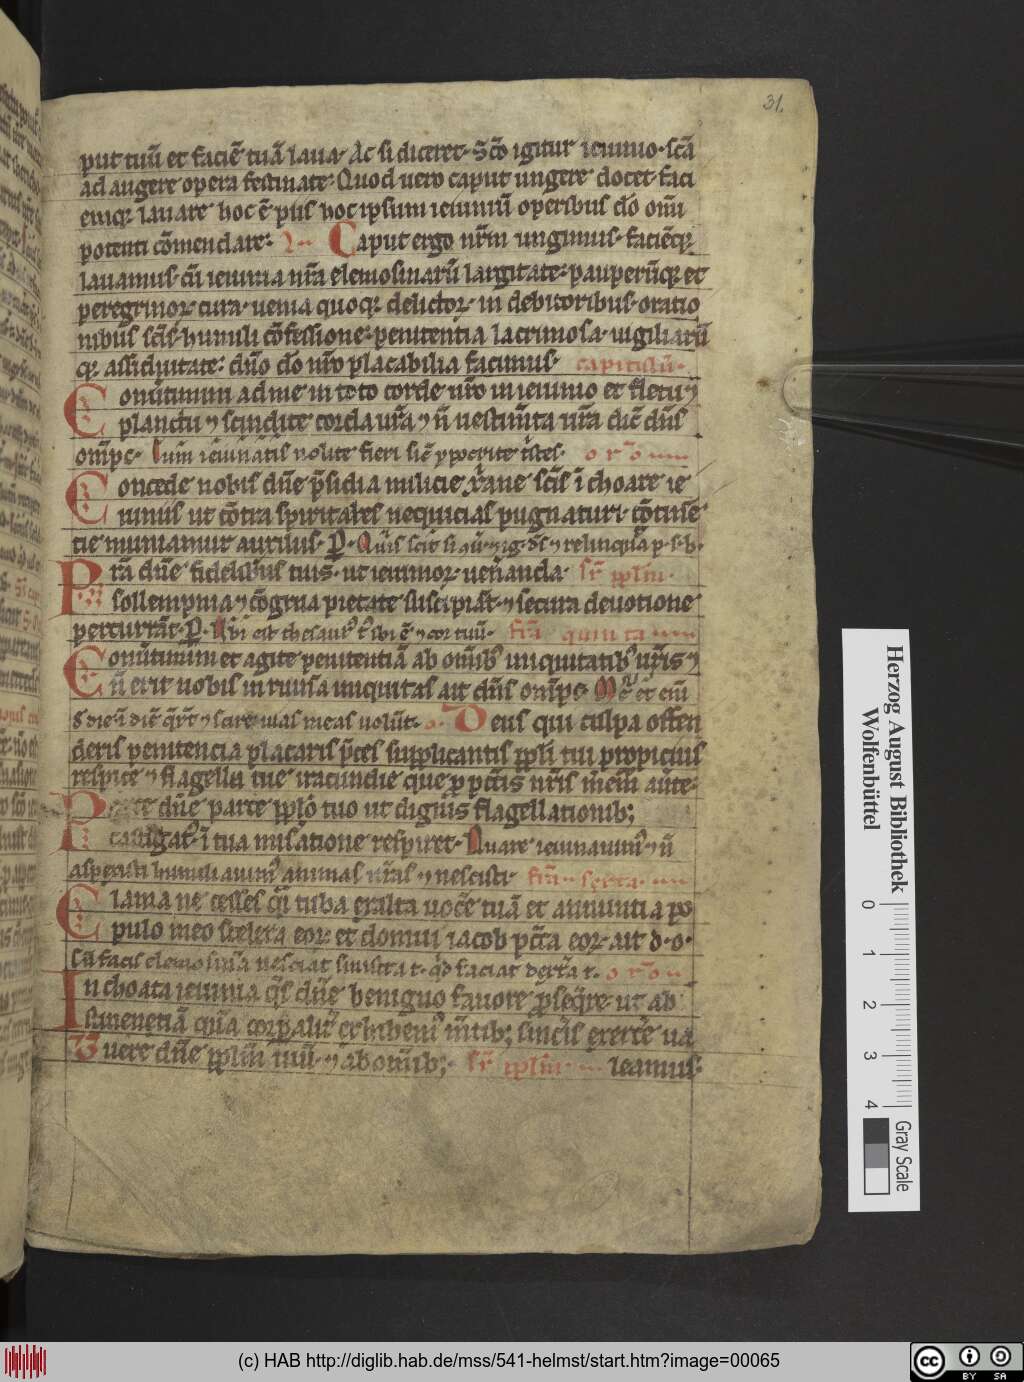 31.
put tuū et faciē tuā laua. Ac si diceret. Sc̄o igitur ieiunio. sc̄a
ad augere opera festinate. Quod uero caput ungere docet. faci
emqꝫ lauare hoc ē piis hoc ipsum ieiuniū operibus d̄o om̄i
potenti cōmendare. Caput ergo nr̄m ungimus. faciēqꝫ
lauamus. cū ieiunia nr̄a elemosinarū largitate. pauperūqꝫ et
peregrinoꝝ cura. uenia quoqꝫ delictoꝝ in debitoribus. oratio
nibus sc̄is. humili cōfessione. penitentia lacrimosa. uigiliarū
qꝫ assiduitate. dn̄o d̄o nr̄o placabilia facimus. capitulū.
Conūtimini ad me in toto corde ur̄o in ieiunio et fletu ⁊
planctu ⁊ scindite corda ur̄a ⁊ n̄ uestim̄ta ur̄a dic̄ dn̄s
om̄ps. Cum ieiunatis nolite fieri sic̄ ypocrite tͥstes. oro
Concede nobis dn̄e p̄sidia milicie xp̄iane sc̄is īchoare ie
iuniis ut cōtra spiritales nequicias pugnaturi. cōtinē
tie muniamur auxiliis. P. Quis scit si
Pr̄a dn̄e fidelibus tuis. ut ieiunioꝝ uen̄anda sr̄ ppl̄m.
sollempnia ⁊ cōgrua pietate suscipiāt. ⁊ secura deuotione
percurrāt. P. Ubi est thesaurꝰ tꝰ ibi ē ⁊ cor tuū. fr̄a quinta
Conūtimini et agite penitentiā ab omībꝫ iniquitatibꝫ ur̄is ⁊
n̄ erit uobis in ruina iniquitas ait dn̄s om̄ps. Me et eni
die ī diē q̄rūt ⁊ scire uias meas uolūt. o. Deus qui culpa offen
deris penitencia placaris p̄ces supplicantis ppl̄i tui propicius
respice ⁊ flagella tue iracundie que ꝓ pcc̄is nr̄is mēm̄ aūte.
Parce dn̄e parce ppl̄o tuo ut dignis flagellationibꝫ
castigatꝰ ī tua mis̄atione respiret. Quare ieiunauimꝰ ⁊ n̄
aspexisti humiliauimꝰ animas nr̄as ⁊ nescisti. fr̄a sexta.
Clama ne cesses q̄i tuba exalta uocē tuā et annuntia po
pulo meo scelera eoꝝ et domui iacob pcc̄a eoꝝ ait d. o.
Cū facis elemosinā nesciat sinistra t. qͥd faciat dextra t. oro
Inchoata ieiunia q̄s dn̄e benigno fauore ꝓseq̄re. ut ab
stinentiā quā corꝑalitͥ exhibemꝰ m̄tibꝫ sinc̄is exerce ua
Tuere dn̄e ppl̄m tuū. ⁊ ab omībꝫ sr̄ ppl̄m leamus.
Herzog August Bibliothek
Wolfenbüttel
0 1 2 3 4
Gray Scale
(c) HAB http://diglib.hab.de/mss/541-helmst/start.htm?image=00065
cc BY SA